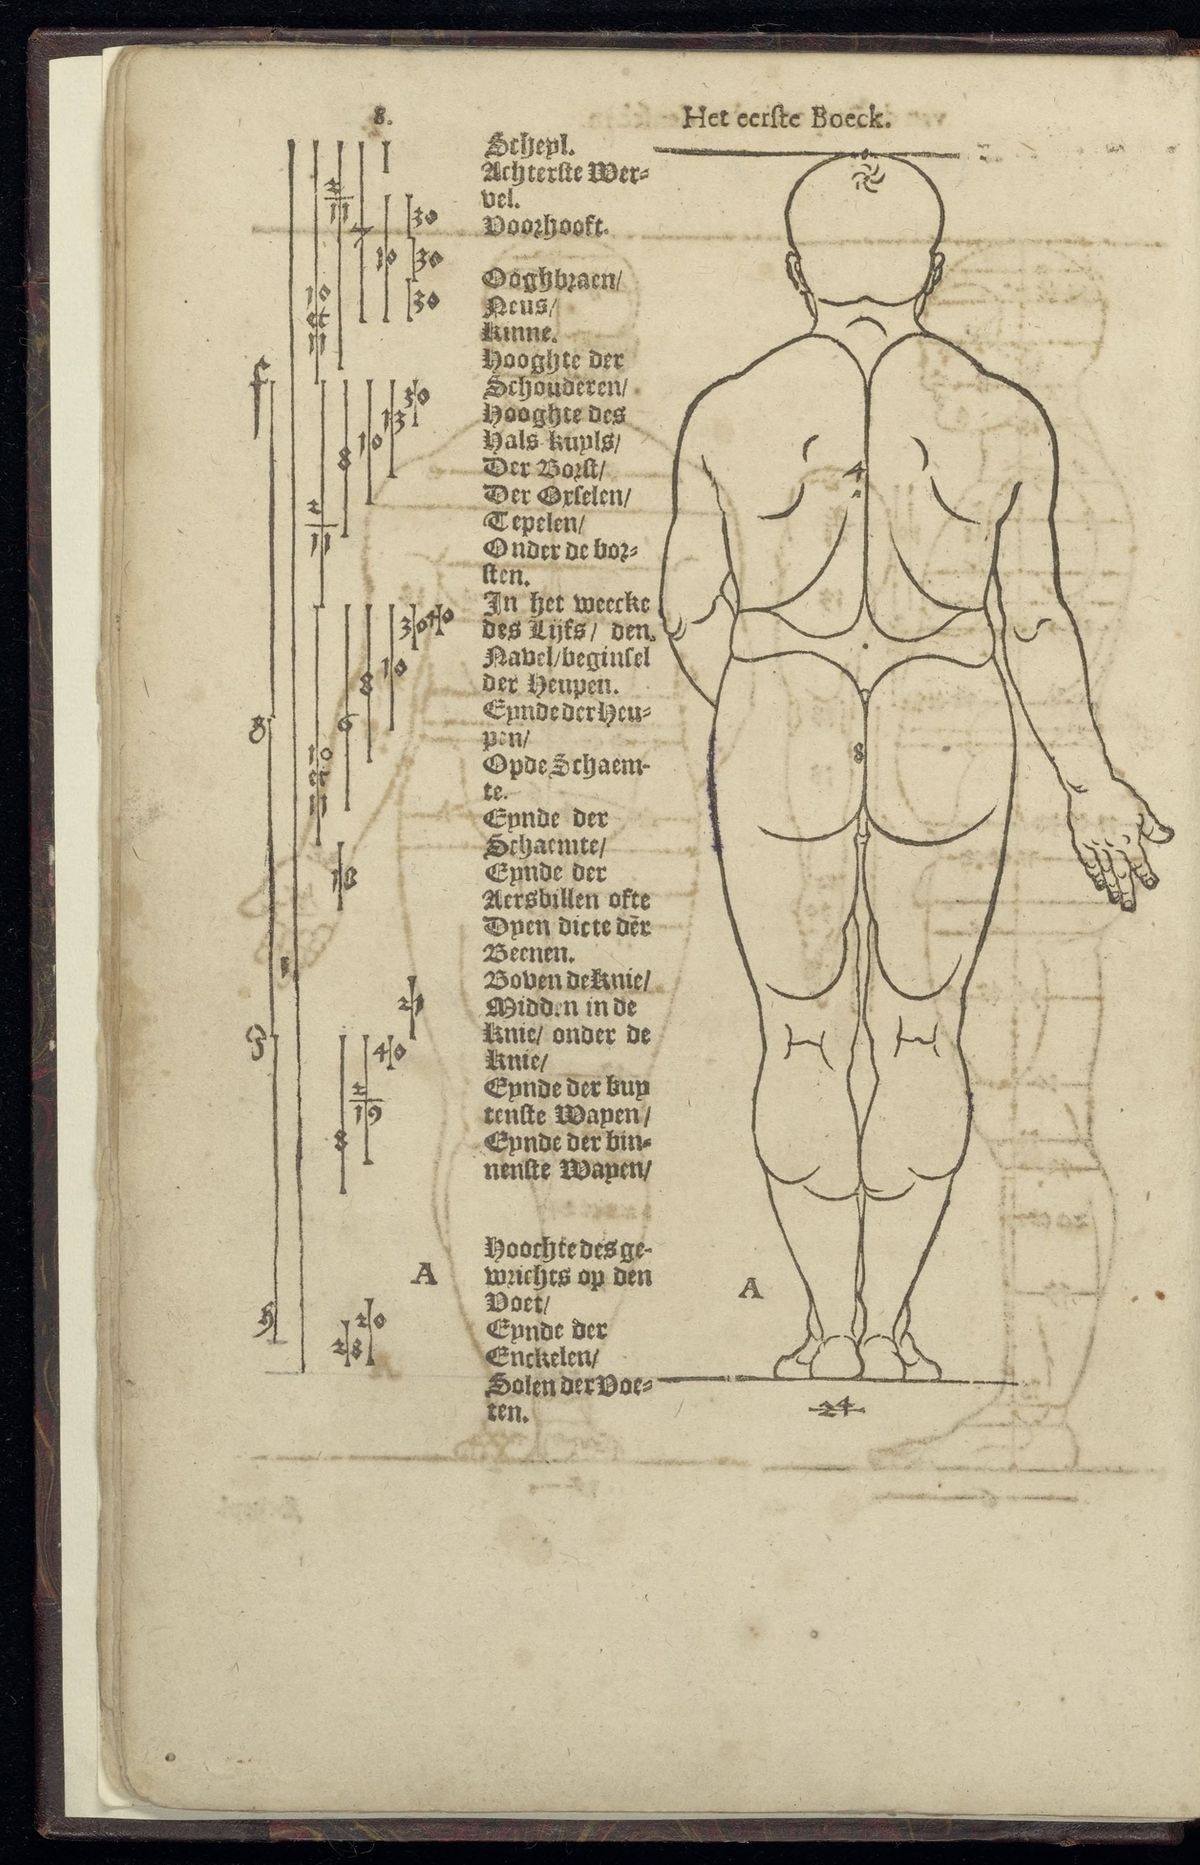 8.
Het eerste Boeck.
Scheyl.
Achterste Wer-
vel.
Voorhooft.
Ooghbraen/
Neus/
kinne.
Hooghte der
Schouderen/
Hooghte des
Hals kuyls/
Der Borst/
Der Oxselen/
Tepelen/
Onder de bor-
sten.
In het weecke
des Lijfs/ den
Navel/beginsel
der Heupen.
Eynde der Heu-
pen/
Op de Schaem-
te.
Eynde der
Schaemte/
Eynde der
Aersbillen ofte
Dyen dicte dēr
Beenen.
Boven de knie/
Midden in de
knie/ onder de
knie/
Eynde der buy
tenste Wayen/
Eynde der bin-
nenste Wayen/
Hoochte des ge-
wrichts op den
Voet/
Eynde der
Enckelen/
Solen der Voe-
ten.
2
11
7
10
30
30
30
10
et
11
f
30
13
10
8
2
11
40
30
10
8
6
10
et
11
g
18
1
21
40
2
19
8
h
20
28
A
4
8
A
24